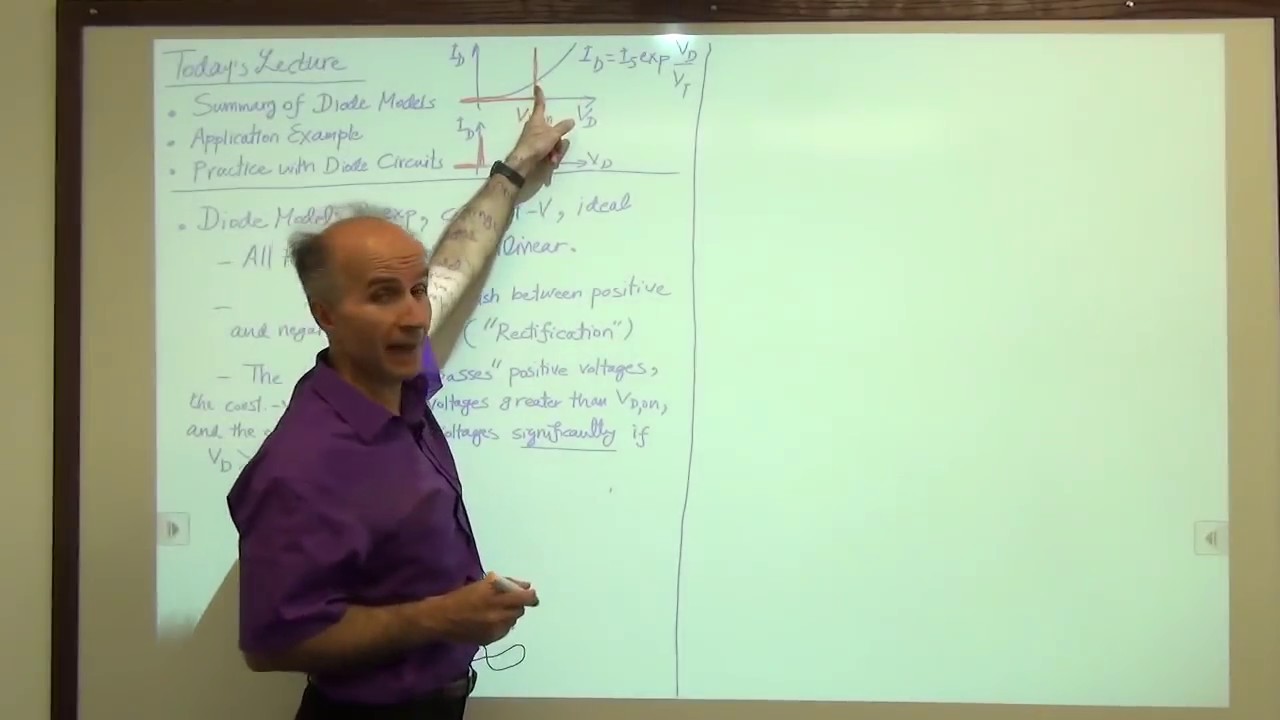 Today's Lecture
• Summary of Diode Models
• Application Example
• Practice with Diode Circuits
I_D
I_D = I_S exp V_D/V_T
V_D
I_D
V_D
• Diode exp, -V, ideal
- All linear.
- between positive
and ("Rectification")
- The positive voltages,
the const. voltages greater than V_D,on,
and the voltages significantly if
V_D >